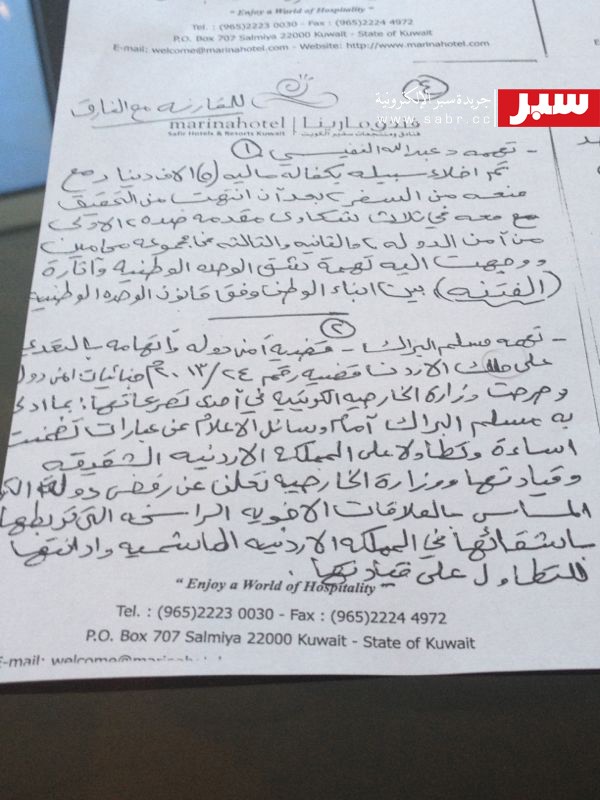 " Enjoy a World of Hospitality "
Tel. : (965)2223 0030 - Fax : (965)2224 4972
P.O. Box 707 Salmiya 22000 Kuwait - State of Kuwait
E-mail: welcome@marinahotel.com - Website: http://www.marinahotel.com
سبر
جريدة سبر الإلكترونية
www.sabr.cc
للمقارنه مع الفارق
marinahotel فندق مارينا
Safir Hotels & Resorts Kuwait فنادق ومنتجعات سفير الكويت
١
- تهمه د عبدالله النفيسي
تم اخلاء سبيله بكفاله ماليه الاف دينار مع
منعه من السفر بعد أن انتهت من التحقيق
مع معه في ثلاث شكاوى مقدمه ضده ، الاولى
من أمن الدوله ، والثانيه والثالثه من مجموعه محامين
ووجهت اليه تهمة بشق الوحده الوطنية وآثارة
(الفتنه) بين ابناء الوطن وفق قانون الوحده الوطنيه
٢
- تهمه مسلم البراك - قضية أمن دوله واتهامه بالتعدي
على ملك الاردن قضيه رقم ٢٠١٣/٢٤ جنائيات امن دوله
وصرحت وزارة الخارجيه الكويتية في احدى تصريحاتها : بما ادلى
به مسلم البراك أمام وسائل الاعلام عن عبارات تضمنت
اساءة وتطاولا على المملكة الاردنيه الشقيقه
وقيادتها ووزارة الخارجيه تعلن عن رفض دولة
المساس بالعلاقات الاخويه الراسخه التي تربطها
باشقائها في المملكة الاردنيه الهاشميه وادانتها
للتطاول على قيادتها .
" Enjoy a World of Hospitality "
Tel. : (965)2223 0030 - Fax : (965)2224 4972
P.O. Box 707 Salmiya 22000 Kuwait - State of Kuwait
E-mail: welcome@marinahotel